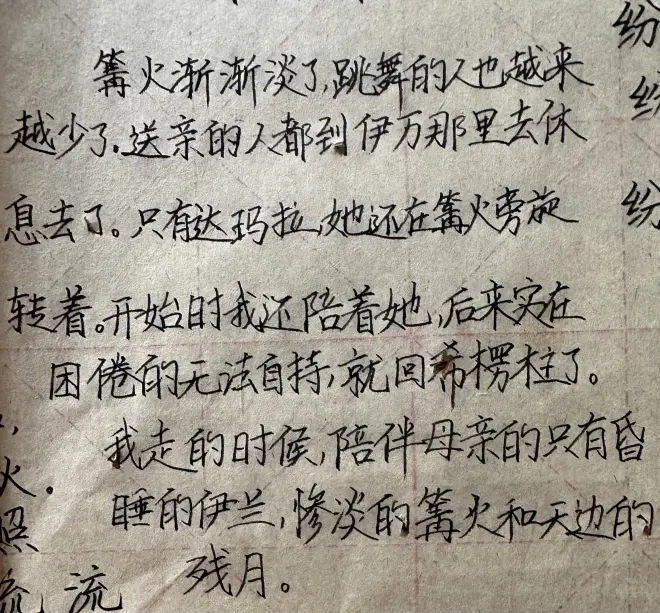 篝火渐渐淡了,跳舞的人也越来
越少了.送亲的人都到伊万那里去休
息去了。只有达玛拉,她还在篝火旁旋
转着。开始时我还陪着她,后来实在
困倦的无法自持,就回希楞柱了。
我走的时候,陪伴母亲的只有昏
睡的伊兰,惨淡的篝火和天边的
残月。
纷
纷
火.
照
流 流